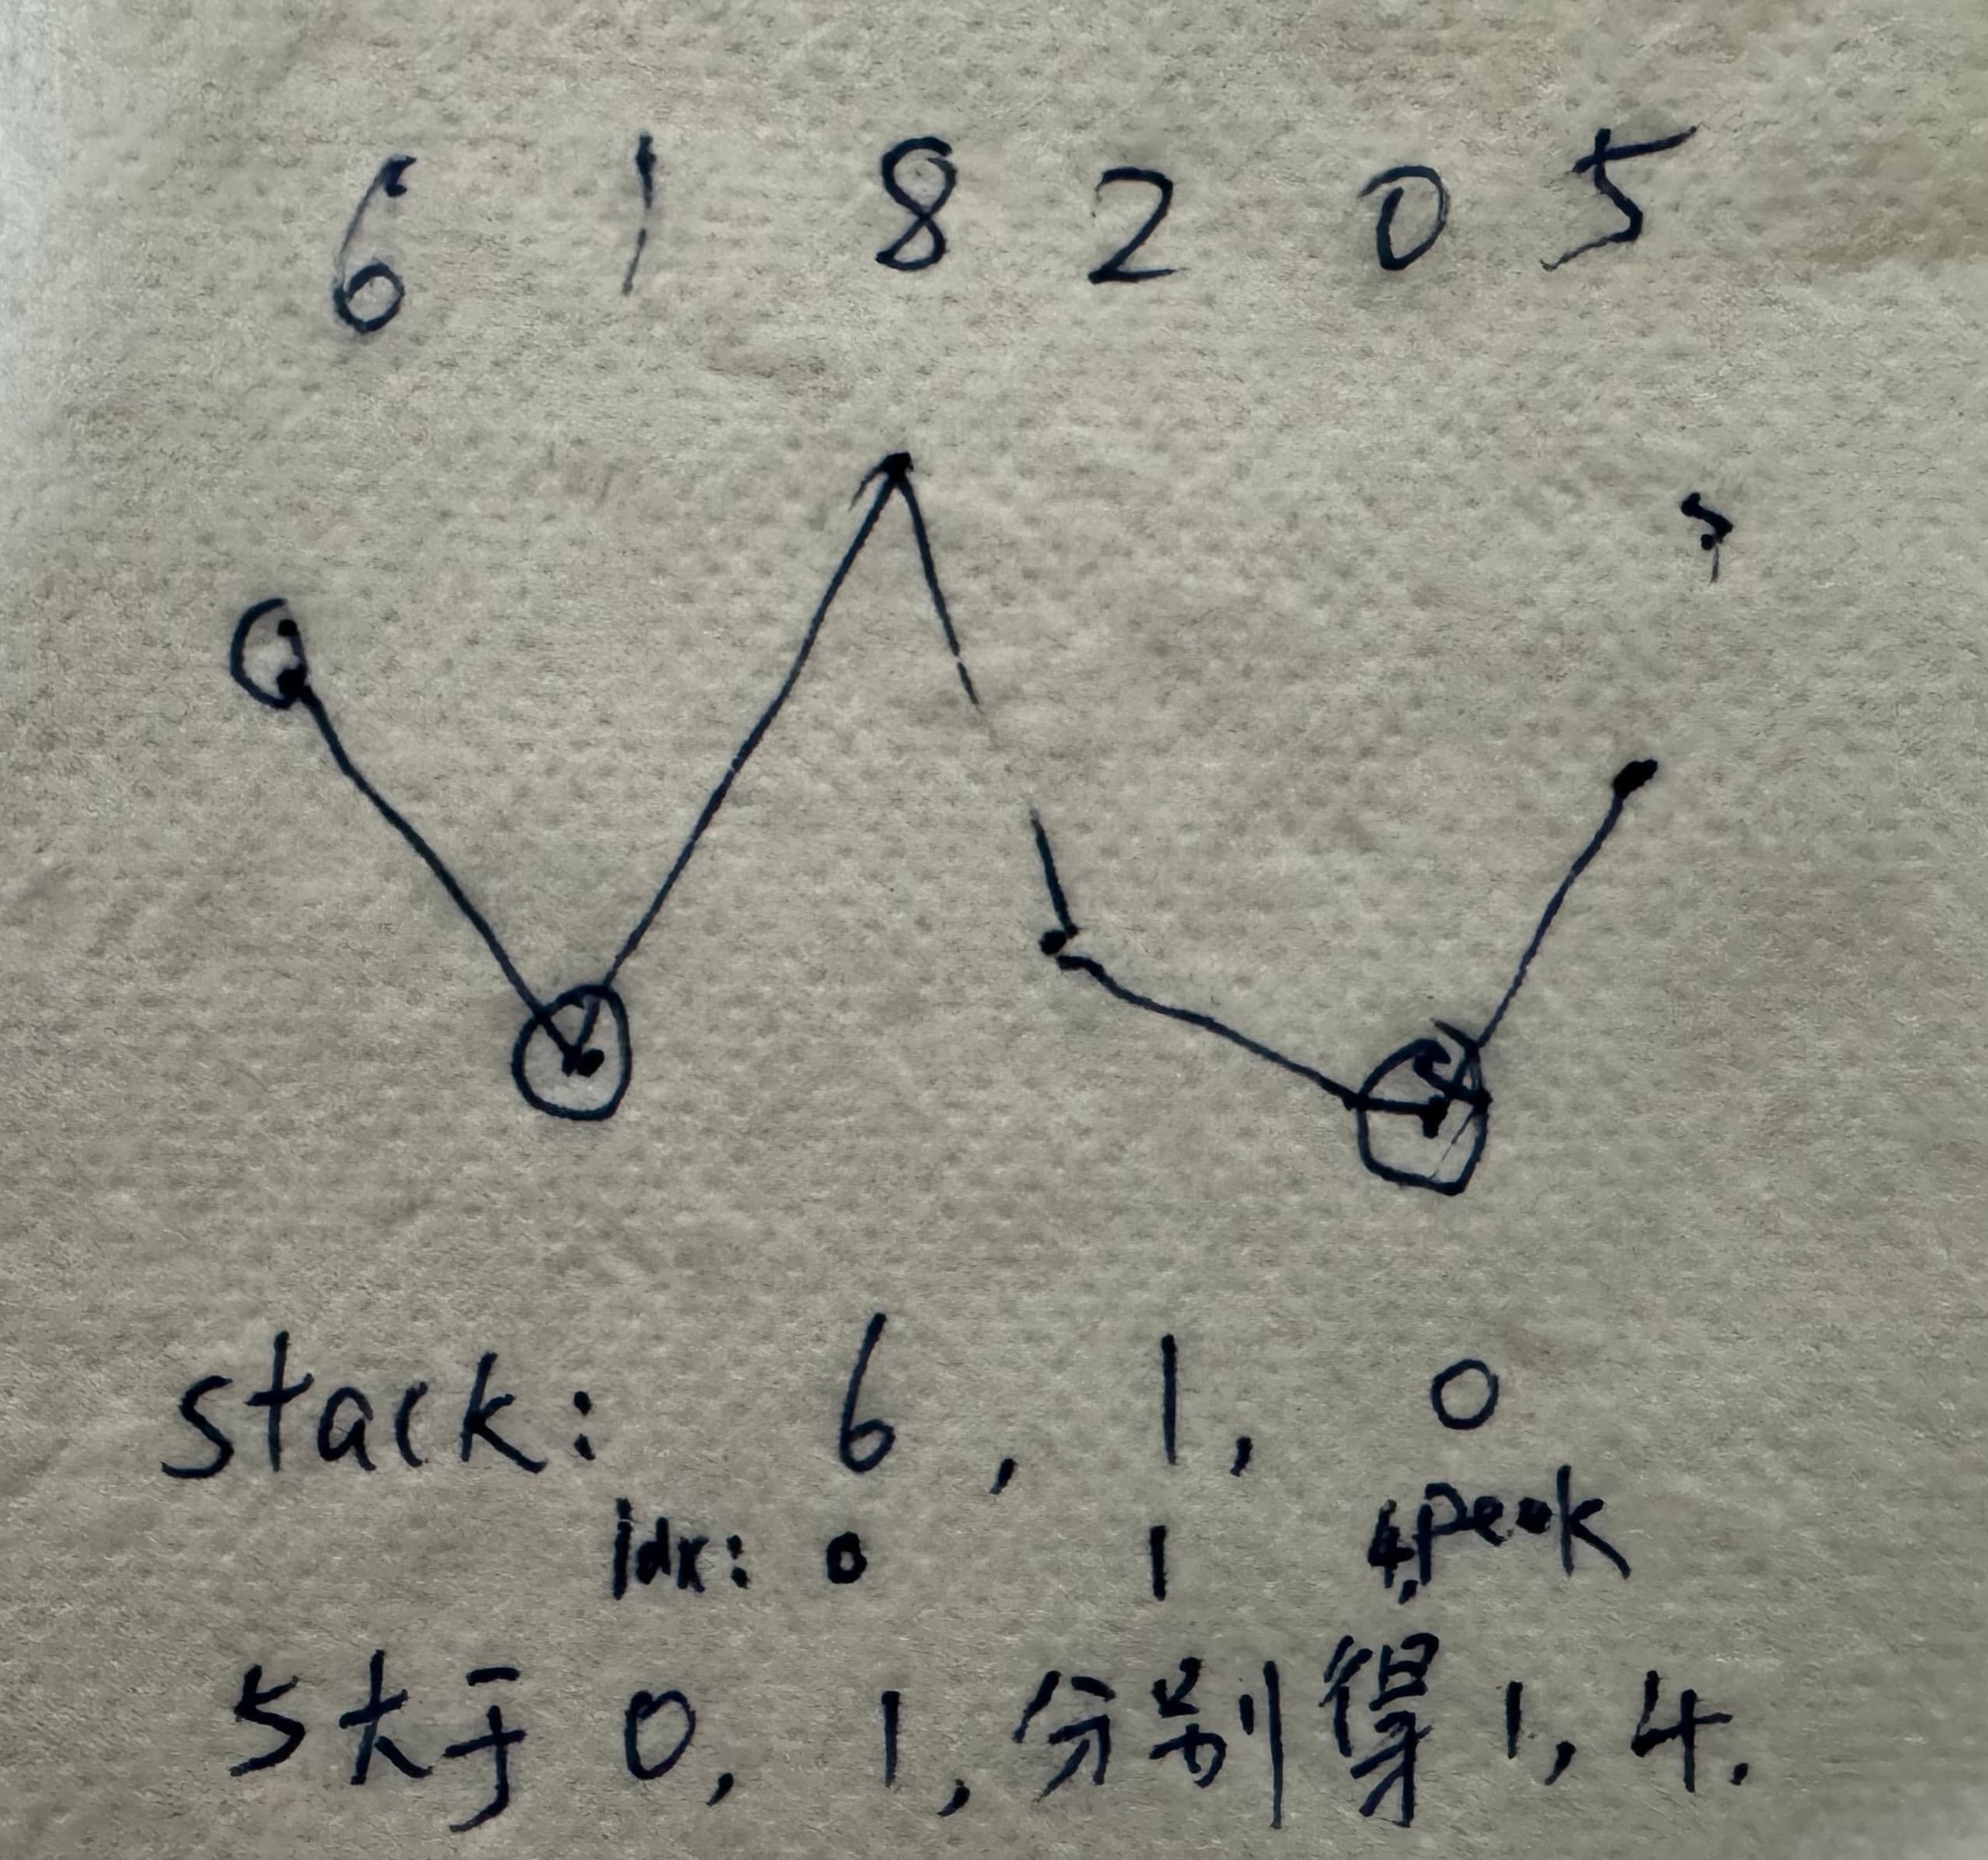 6 1 8 2 0 5
stack: 6, 1, 0
idx: 0 1 4, peak
5大于 0, 1, 分别得 1, 4.